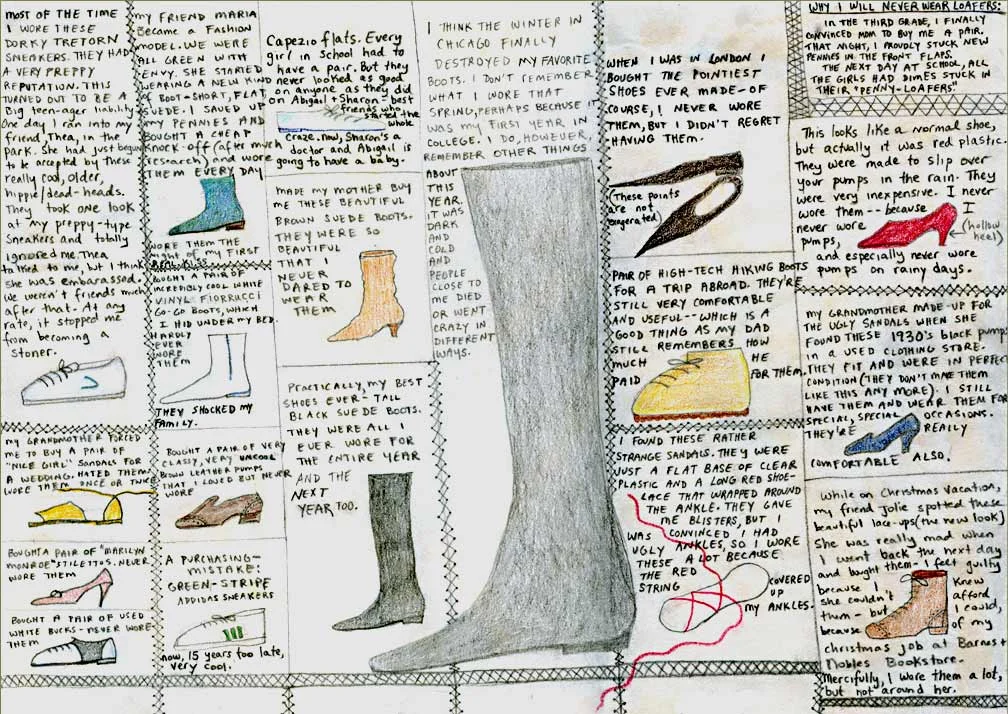 MOST OF THE TIME
I WORE THESE
DORKY TRETORN
SNEAKERS. THEY HAD
A VERY PREPPY
REPUTATION. THIS
TURNED OUT TO BE A
Big teen-ager liability.
One day I ran into my
friend, Thea, in the
park. She had just begun
to be accepted by these
really cool, older,
hippie/dead-heads.
They took one look
at my preppy-type
sneakers and totally
ignored me. Thea
talked to me, but I think
she was embarassed.
We weren't friends much
after that. At any
rate, it stopped me
from becoming a
stoner.
my GRANDMOTHER FORCED
ME TO BUY A PAIR OF
"NICE GIRL" SANDALS FOR
A WEDDING. HATED THEM
WORE THEM ONCE OR TWICE
BOUGHT A PAIR OF "MARILYN
MONROE" STILETTOS. NEVER
WORE THEM
BOUGHT A PAIR OF USED
WHITE BUCKS - NEVER WORE
THEM
MY FRIEND MARIA
Became a FASHION
MODEL. WE WERE
ALL GREEN WITH
ENVY. SHE STARTED
WEARING A NEW KIND
OF BOOT - SHORT, FLAT,
SUEDE. I SAVED UP
MY PENNIES AND
BOUGHT A CHEAP
KNOCK-OFF (after much
research) and WORE
THEM EVERY DAY
WORE THEM THE
night of my FIRST
BOUGHT A PAIR OF
INCREDIBLY COOL WHITE
VINYL FIORRUCCI
GO-GO BOOTS, WHICH
I HID UNDER MY BED.
HARDLY
EVER
WORE
THEM
THEY SHOCKED MY
FAMILY.
BOUGHT A PAIR OF VERY
CLASSY, VERY UNCOOL
BROWN LEATHER PUMPS
THAT I LOVED BUT NEVER
WORE
A PURCHASING-
MISTAKE:
GREEN-STRIPE
ADDIDAS SNEAKERS
now, 15 years too late,
very cool.
Capezio flats. Every
girl in School had to
have a pair. But they
never looked as good
on anyone as they did
on Abigail + Sharon - best
friends who
started the
whole
craze. now, Sharon's a
doctor and Abigail is
going to have a baby.
MADE MY MOTHER BUY
ME THESE BEAUTIFUL
BROWN SUEDE BOOTS.
THEY WERE SO
BEAUTIFUL
THAT I
NEVER
DARED TO
WEAR
THEM
PRACTICALLY, MY BEST
SHOES EVER - TALL
BLACK SUEDE BOOTS.
THEY WERE ALL I
EVER WORE FOR
THE ENTIRE YEAR
AND THE
NEXT
YEAR TOO.
I THINK THE WINTER IN
CHICAGO FINALLY
DESTROYED MY FAVORITE
BOOTS. I DON'T REMEMBER
WHAT I WORE THAT
SPRING, PERHAPS BECAUSE IT
WAS MY FIRST YEAR IN
COLLEGE. I DO, HOWEVER,
REMEMBER OTHER THINGS
ABOUT
THIS
YEAR.
IT WAS
DARK
AND
COLD
AND
PEOPLE
CLOSE TO
ME DIED
OR WENT
CRAZY IN
DIFFERENT
WAYS.
WHEN I WAS IN LONDON I
BOUGHT THE POINTIEST
SHOES EVER MADE - OF
COURSE, I NEVER WORE
THEM, BUT I DIDN'T REGRET
HAVING THEM.
(These points
are not
exagerated)
PAIR OF HIGH-TECH HIKING BOOTS
FOR A TRIP ABROAD. THEY'RE
STILL VERY COMFORTABLE
AND USEFUL -- WHICH IS A
GOOD THING AS MY DAD
STILL REMEMBERS HOW
MUCH HE
PAID FOR THEM.
I FOUND THESE RATHER
STRANGE SANDALS. THEY WERE
JUST A FLAT BASE OF CLEAR
PLASTIC AND A LONG RED SHOE-
LACE THAT WRAPPED AROUND
THE ANKLE. THEY GAVE
ME BLISTERS, BUT I
WAS CONVINCED I HAD
UGLY ANKLES, SO I WORE
THESE A LOT BECAUSE
THE RED
STRING COVERED
UP
MY ANKLES.
WHY I WILL NEVER WEAR LOAFERS:
IN THE THIRD GRADE, I FINALLY
CONVINCED MOM TO BUY ME A PAIR.
THAT NIGHT, I PROUDLY STUCK NEW
PENNIES IN THE FRONT FLAPS.
THE NEXT DAY AT SCHOOL, ALL
THE GIRLS HAD DIMES STUCK IN
THEIR "PENNY-LOAFERS."
This looks like a normal shoe,
but actually it was red plastic.
They were made to slip over
your pumps in the rain. They
were very inexpensive. I never
wore them -- because I
never wore
pumps,
(hollow
heel)
and especially never wore
pumps on rainy days.
MY GRANDMOTHER MADE UP FOR
THE UGLY SANDALS WHEN SHE
FOUND THESE 1930's black pumps
IN A USED CLOTHING STORE.
THEY FIT AND WERE IN PERFECT
CONDITION (THEY DON'T MAKE THEM
LIKE THIS ANY MORE). I STILL
HAVE THEM AND WEAR THEM FOR
SPECIAL, SPECIAL OCCASIONS.
THEY'RE REALLY
COMFORTABLE ALSO.
While on Christmas vacation,
my friend Jolie spotted these
beautiful lace-ups (the new look)
She was really mad when
I went back the next day
and bought them - I feel guilty
because I knew
she couldn't afford
them - but I could,
because of my
christmas job at Barnes +
Nobles Bookstore.
Mercifully, I wore them a lot,
but not around her.